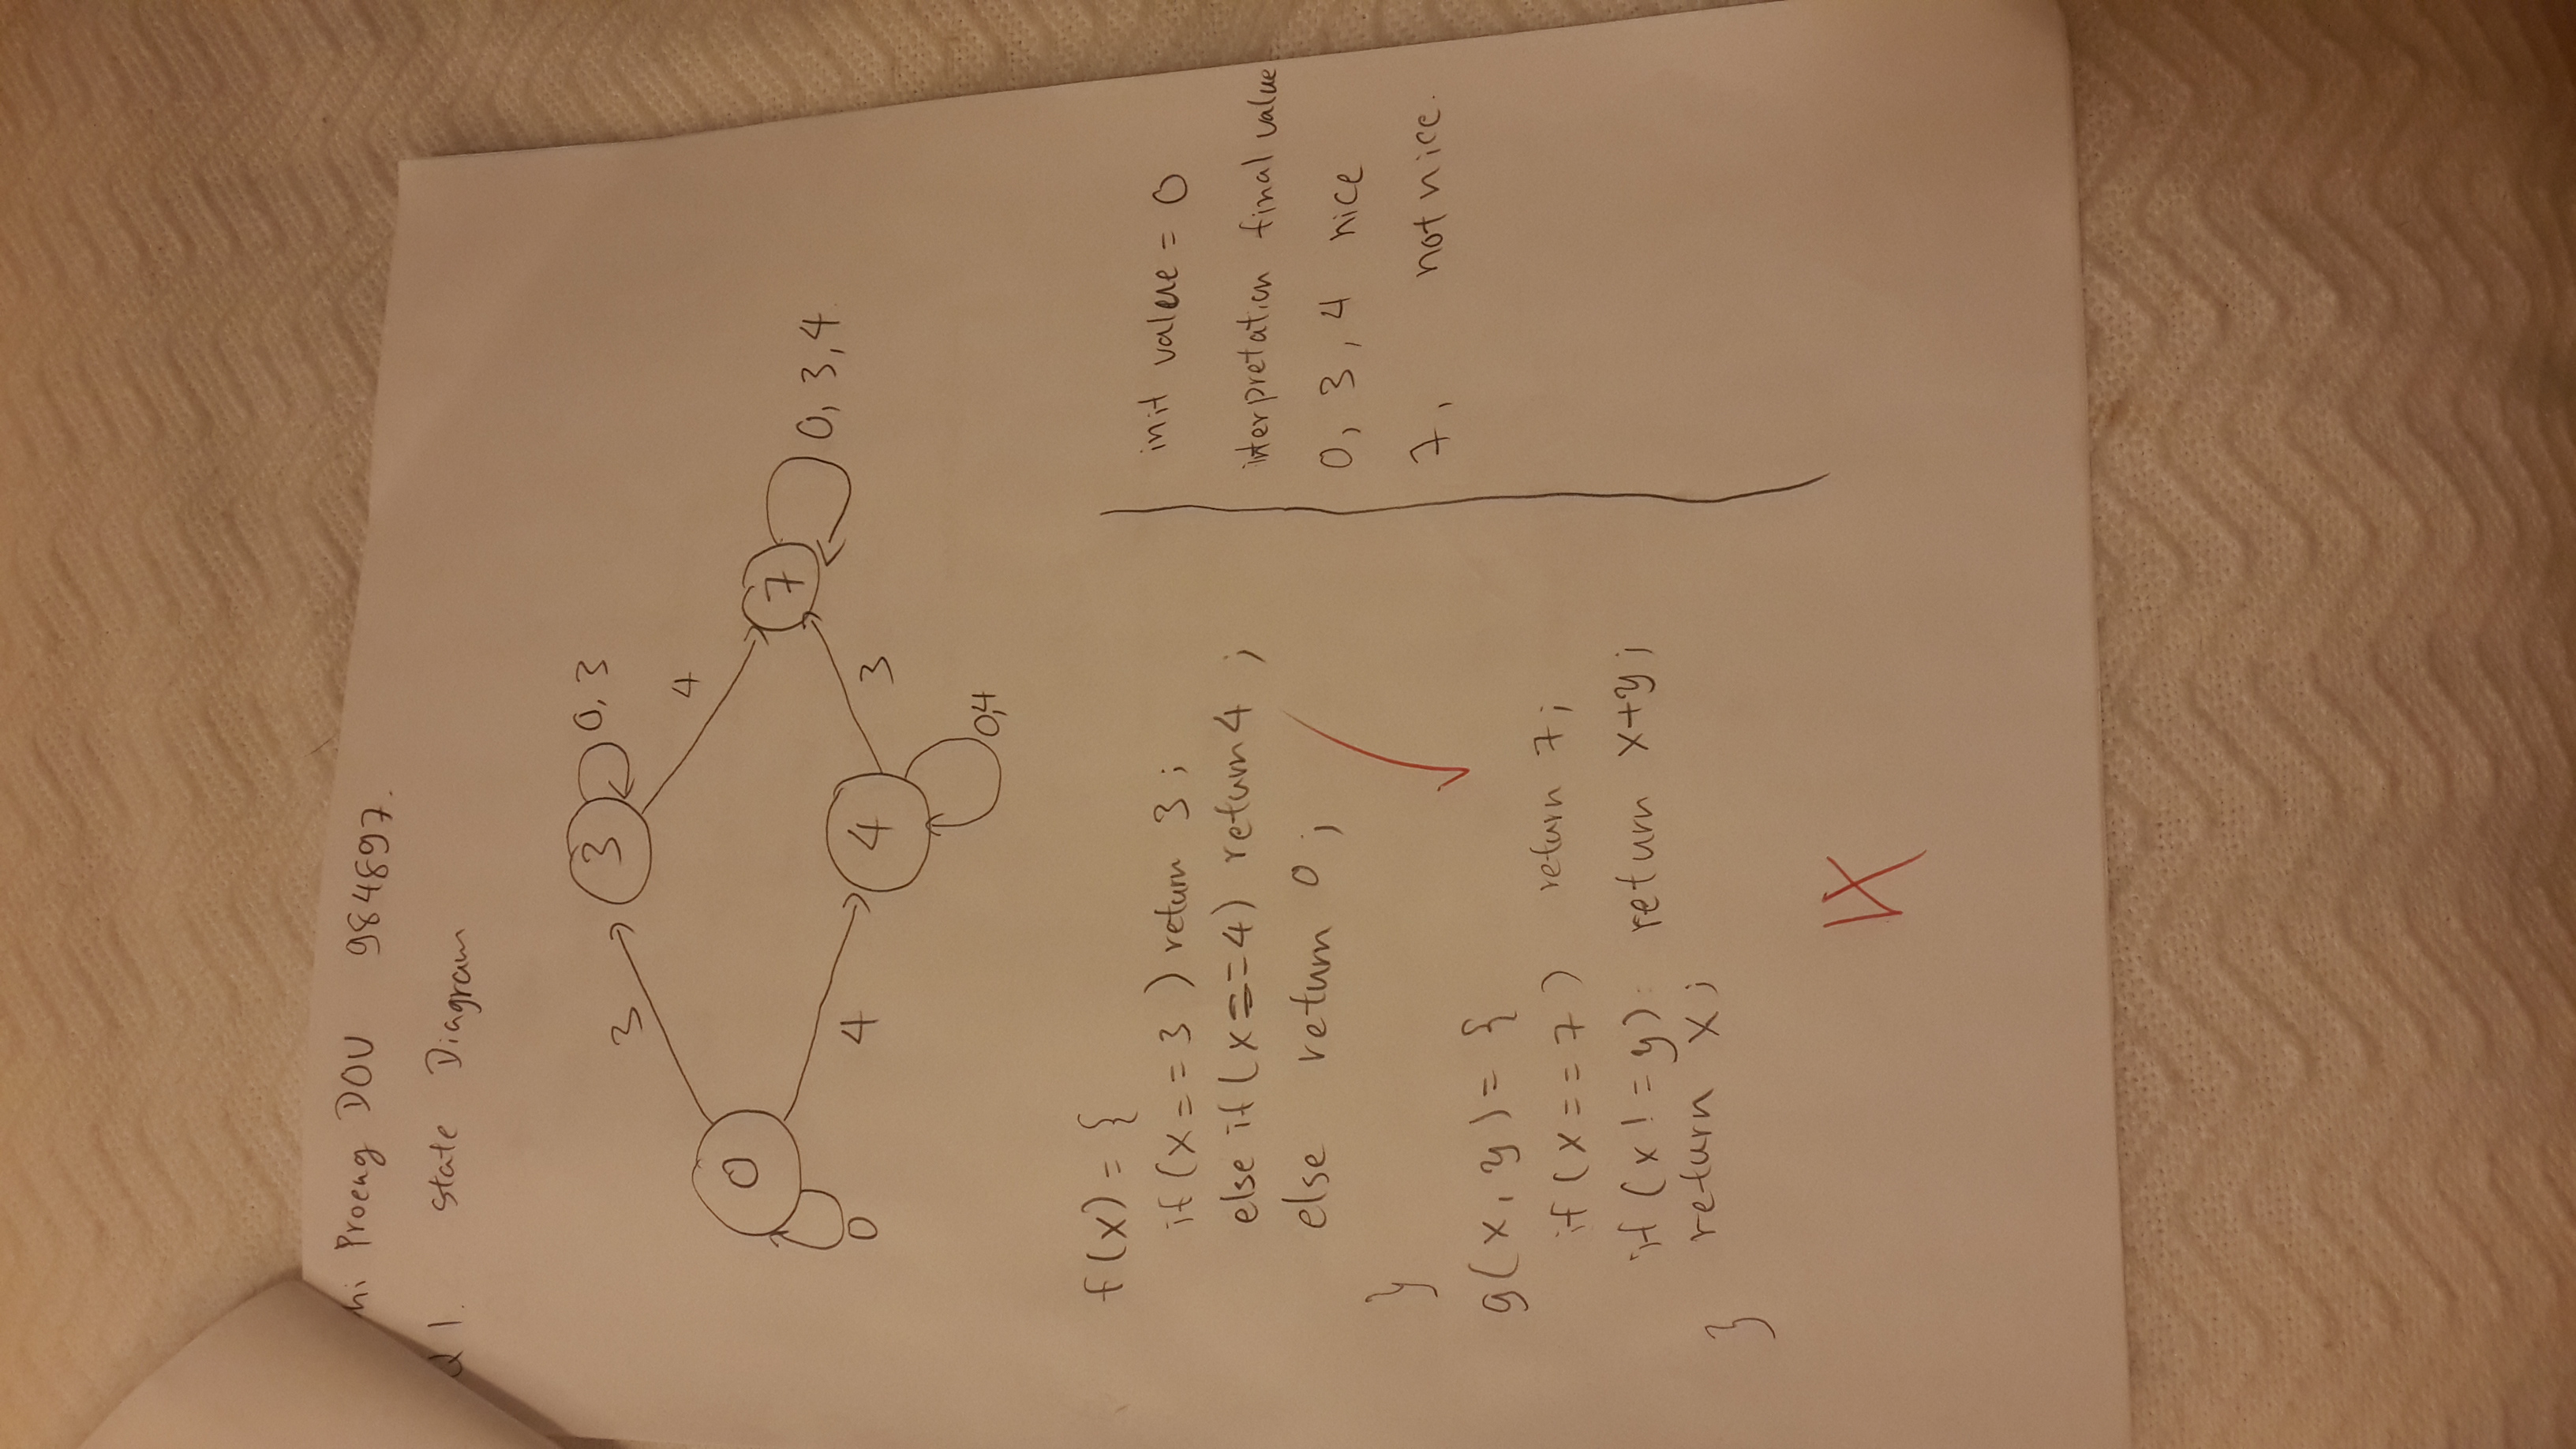 hi Proeng DOU 984897.
Q1. State Diagram
3
3
0, 3
4
0
7
0, 3, 4
0
4
4
3
0,4
f(x) = {
if (x == 3) return 3;
else if (x == 4) return 4;
else return 0;
}
g(x, y) = {
if (x == 7) return 7;
if (x != y) return x+y;
return x;
}
init value = 0
interpretation final value
0, 3, 4 nice
7, not nice.